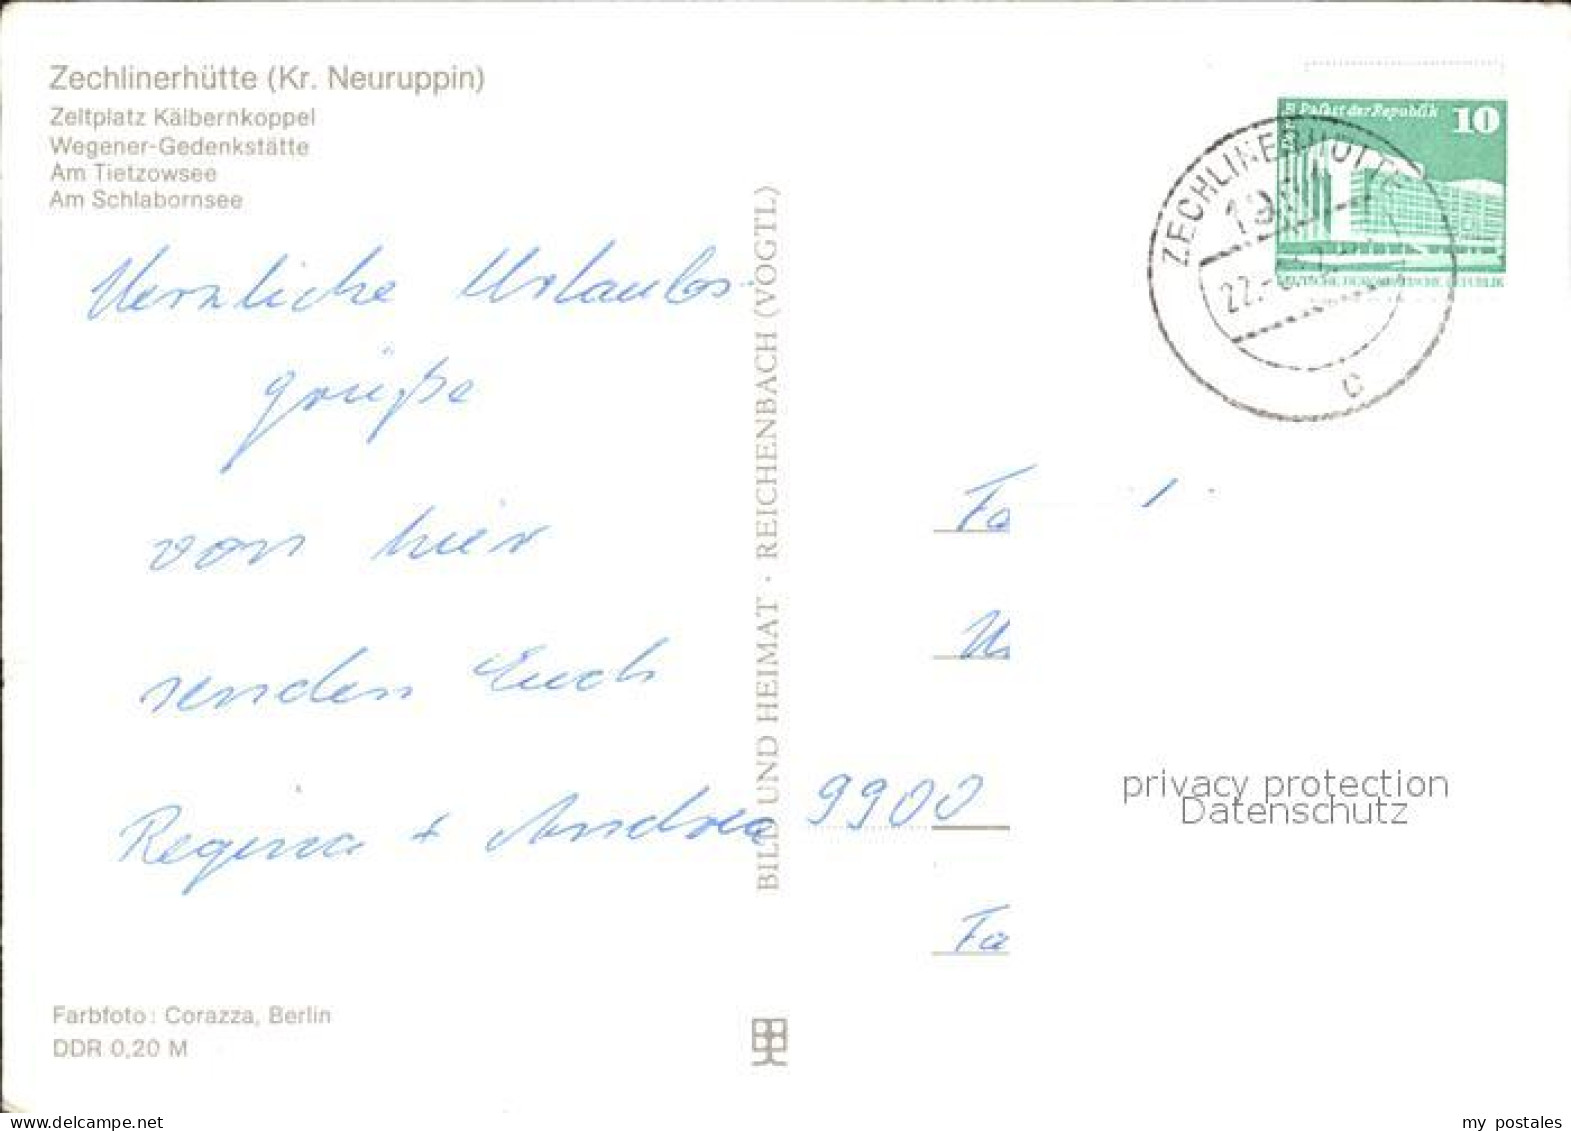 Zechlinerhütte (Kr. Neuruppin)
Zeltplatz Kälbernkoppel
Wegener-Gedenkstätte
Am Tietzowsee
Am Schlabornsee
Herzliche Urlaubs-
grüße
von hier
senden Euch
Regina + Andrea
Farbfoto: Corazza, Berlin
DDR 0,20 M
BILD UND HEIMAT · REICHENBACH (VOGTL)
Palast der Republik 10
ZECHLINERHÜTTE
22.
c
Fa
9900
Fa
privacy protection
Datenschutz
www.delcampe.net
my_postales